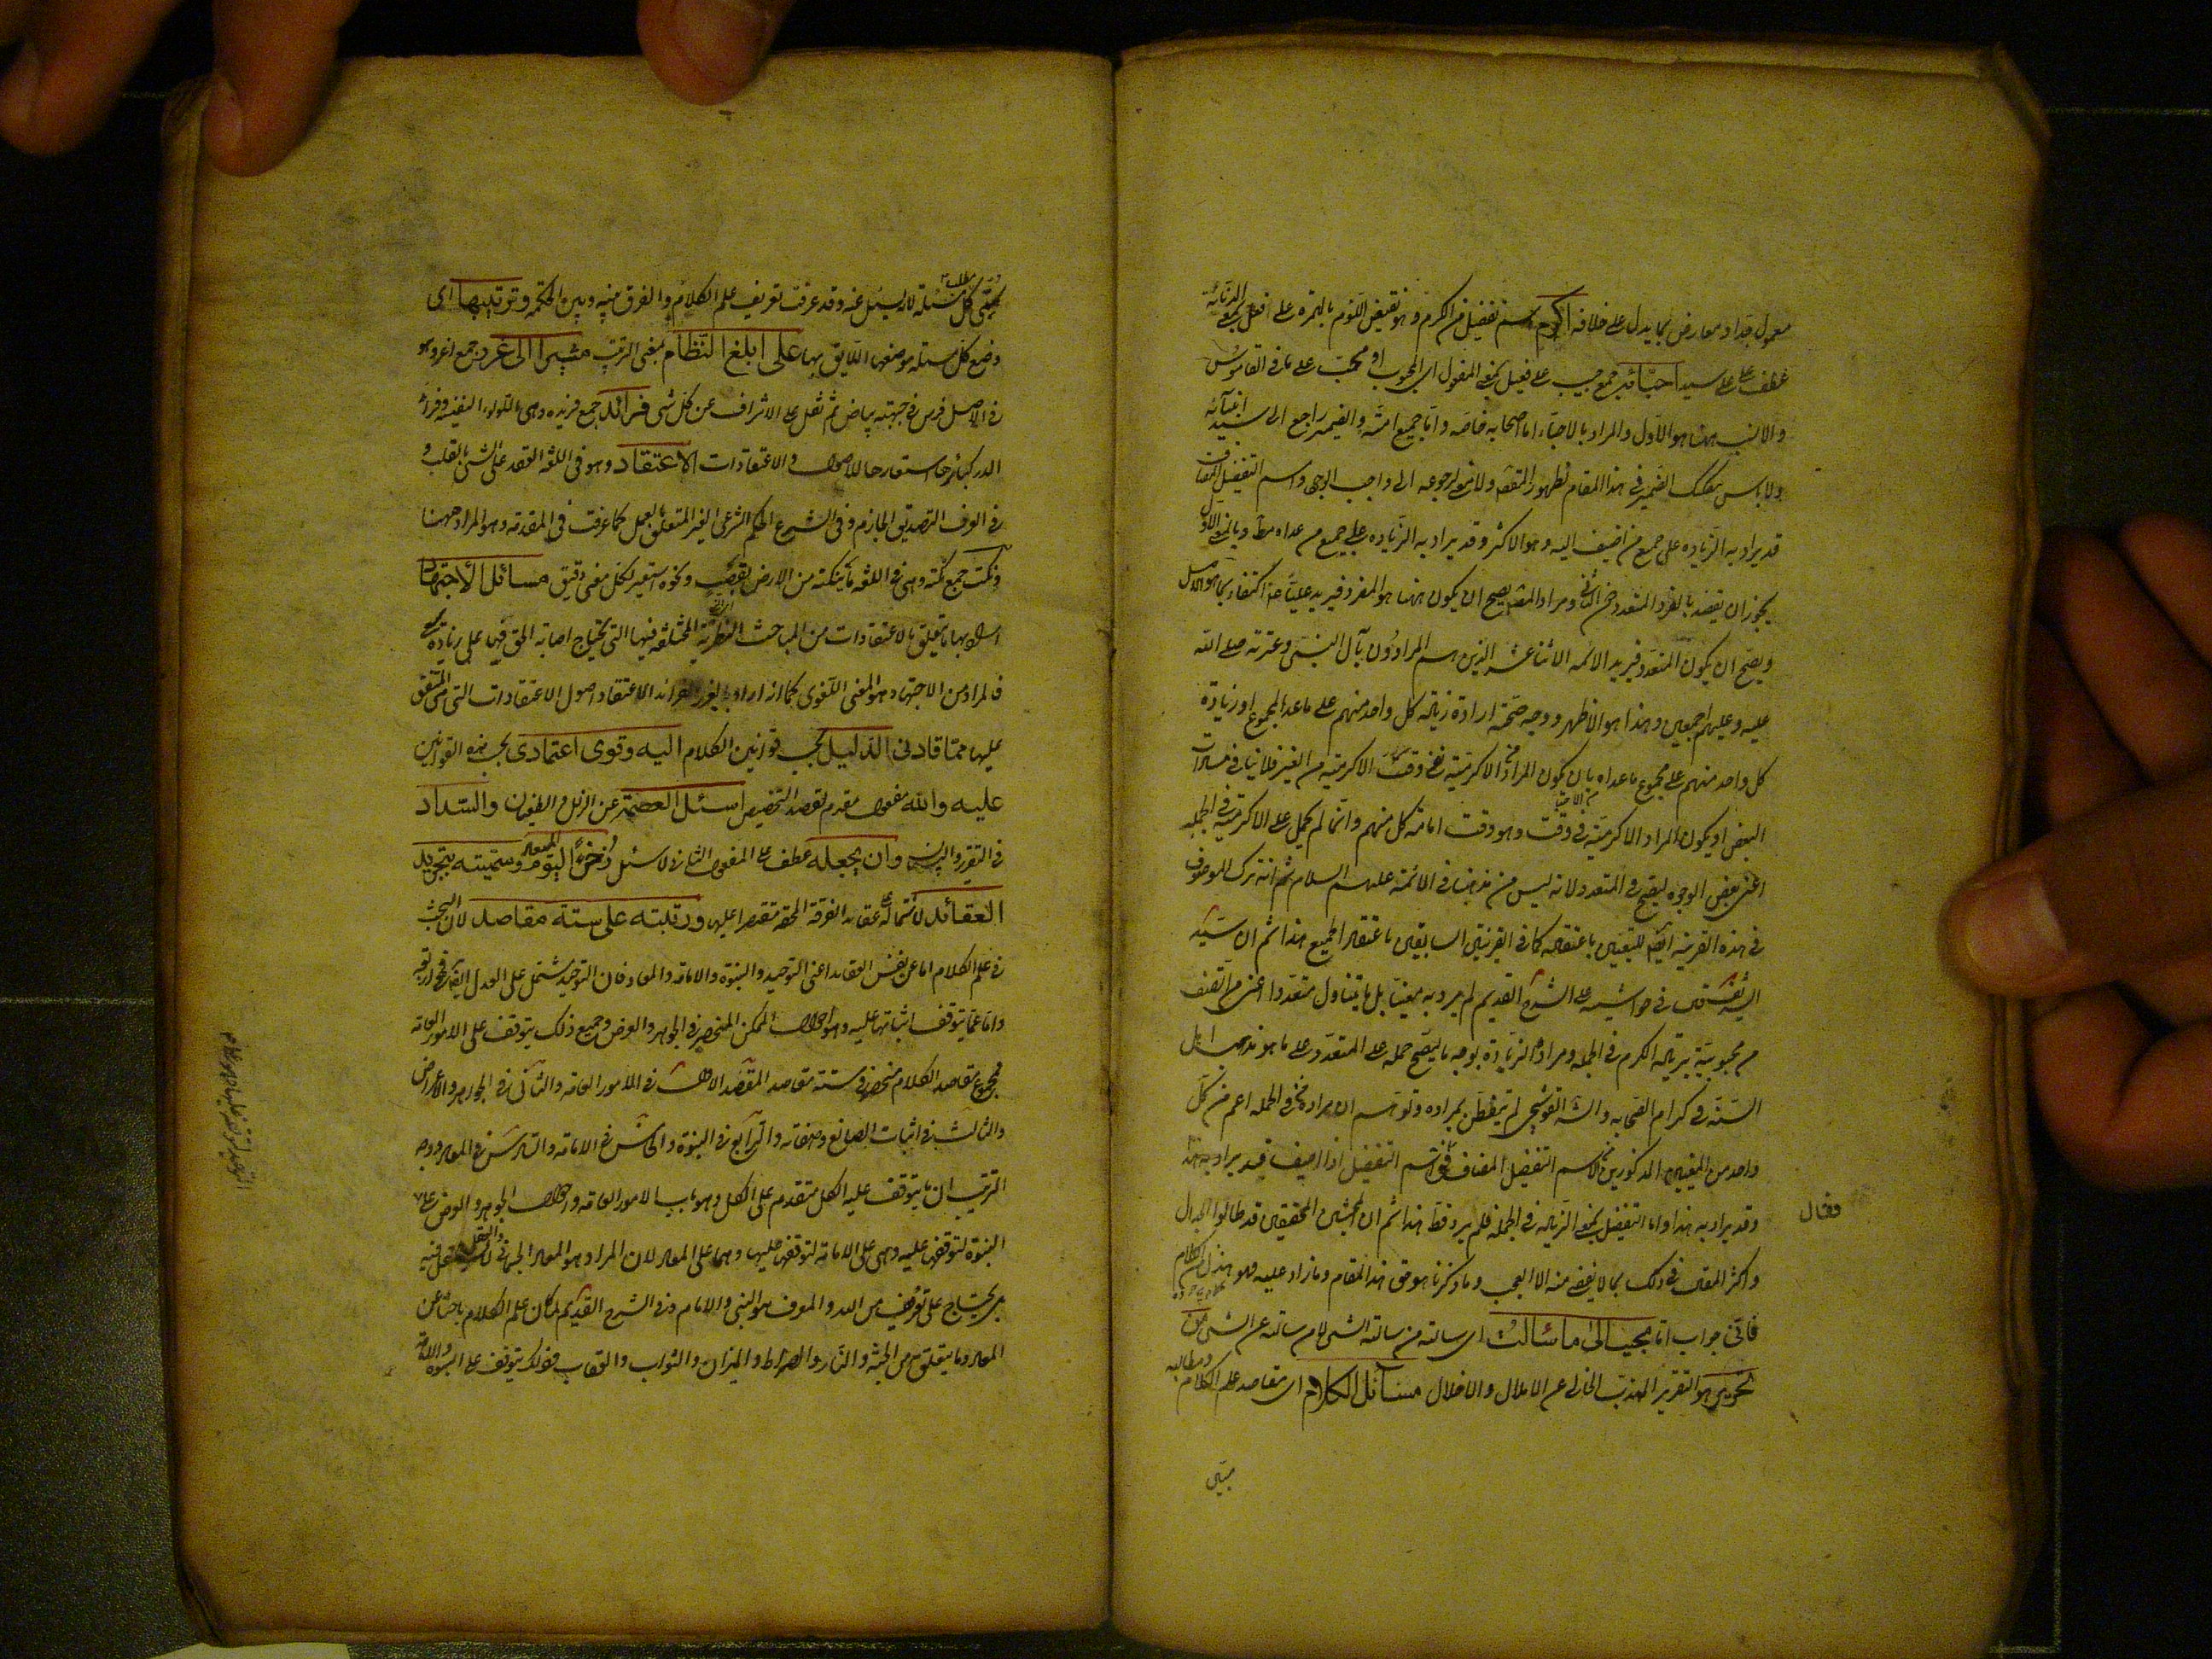 معمول جدا ومعارض بما يدل على خلافه اكرم اسم تفضيل من الكرم وهو نقيض اللوم بالهمزة على افعل
عطف على على سيد احبائه جمع حبيب على فعيل بمعنى المفعول اى المحبوب او محب على ما فى القاموس
والانسب ههنا هو الاول والمراد بالاحباء اما صحابه خاصة واما جميع امته والضمير راجع الى سيد انبيائه
ولا باس بتفكيك الضمير فى هذا المقام لظهور المقصود ولا مانع لرجوعه الى واجب الوجود واسم التفضيل المضاف
قد يراد به الزيادة على جميع من اضيف اليه وهو الاكثر وقد يراد به الزيادة على جميع من عداه مطلقا وبالمعنى الاول
يجوز ان يقصد بالمفرد المتعدد دون الثانى ومراد المصنف يصح ان يكون ههنا هو المفرد فيريد عليا اكتفاء بما هو الاصل
ويصح ان يكون المتعدد فيريد الائمه الاثنا عشر الذين هم المرادون بآل النبى وعترته صلى الله
عليه وعليهم اجمعين وهذا هو الاظهر ووجه صحة ارادة زيادة كل واحد منهم على ما عدا المجموع او زيادة
كل واحد منهم على مجموع ما عداه بان يكون المراد الاكرمية فى وقت الاكرمية من الغير فلا ينافى مساواة
البعض او يكون المراد الاكرمية فى وقت وهو وقت امامة كل منهم وانما لم يحمل على الاكرمية فى الجملة
اعنى بعض الوجوه ليصح فى المتعدد لانه ليس من مذهبنا فى الائمة عليهم السلام ثم انه ترك الموصوف
فى هذه القرينة ايضا للتعيين باعتقاده كما فى القرينتين السابقتين باعتقاد الجميع هذا ثم ان سيد
المحققين فى حواشيه على الشرح القديم لم يرد به معينا بل ما يتناول متعددا اعنى من اتصف
من محبوبيه بزيادة الكرم فى الجملة ومراده الزيادة بوجه ما ليصح حمله على المتعدد على ما هو مذهب اهل
السنة فى كرام الصحابه والشارح القوشجى لم يتفطن بمراده وتوهم ان مراده فى الجملة اعم من كل
واحد من المعنيين المذكورين لاسم التفضيل المضاف فان اسم التفضيل اذا اضيف قد يراد به هذا
وقد يراد به هذا واما التفضيل بمعنى الزيادة فى الجملة فلم يرد قط هذا ثم ان المحشين المحققين قد طالوا الجدال
فقال
واكثر المقال فى ذلك بما لا يفضى منه الا العجب وما ذكرنا هو حق هذا المقام وما زاد عليه فهو هذر من الكلام
فانى جواب اما مجيب الى ما سالت اى سالته من سالته الشئ لا من سالته عن الشئ
تحرير هو التقرير المهذب الخالى عن الاملال والاخلال مسائل الكلام اى مقاصد علم الكلام ومطالبه
يبتنى
كل مسئلة لانه يسئل عنه وقد عرفت تعريف علم الكلام والفرق بينه وبين الحكمة وترتيبها اى
وضع كل مسئلة موضعها اللايق بها على ابلغ النظام بمعنى الترتيب مشيرا الى غرر جمع اغر وهو
فى الاصل فرس فى جبهته بياض ثم نقل على الاشراف عن كل شئ فرائد جمع فريده وهى اللؤلؤ النفيسة وفرائد
الدر كبائرها استعارها للاصول والاعتقادات الاعتقاد وهو فى اللغة العقد على الشئ بالقلب و
فى العرف التصديق الجازم وفى الشرع الحكم الشرعى الغير المتعلق بالعمل كما عرفت فى المقدمة وهو المراد ههنا
ونكت جمع نكتة وهى فى اللغة ما ينكته من الارض بقضيب ونحوه استعير لكل معنى دقيق مسائل الاجتهاد
بها ما يتعلق بالاعتقادات من المباحث النظرية المختلفة فيها التى يحتاج اصابة الحق فيها على زيادة
فالمراد من الاجتهاد هو المعنى اللغوى كما انه اراد بالغرر فرائد الاعتقاد اصول الاعتقادات التى هى المتفق
عليها مما قادنى الدليل بحسب قوانين الكلام اليه وقوى اعتمادى بحسب هذه القوانين
عليه والله مفعول مقدم لقصد التخصيص اسئل العصمة عن الزلل والطغيان والسداد
فى التقرير والبيان وان يجعله عطف على المفعول الثانى لاسئل ذخرا ليوم المعاد وسميته بتجريد
العقائد لاشتماله على عقائد الفرقة المحقة مقتصرا عليها ورتبته على ستة مقاصد لان البحث
فى علم الكلام اما عن نفس العقائد اعنى التوحيد والنبوة والامامة والمعاد فان التوحيد مشتمل على العدل ايضا
واما عما يتوقف اثباتها عليه وهو احوال الممكن المنحصر فى الجوهر والعرض وجميع ذلك يتوقف على الامور العامة
فمجموع مقاصد الكلام منحصر فى ستة مقاصد المقصد الاول فى الامور العامة والثانى فى الجواهر والاعراض
والثالث فى اثبات الصانع وصفاته والرابع فى النبوة والخامس فى الامامة والسادس فى المعاد ووجه
الترتيب ان ما يتوقف عليه الكل متقدم على الكل وهو باب الامور العامة واحوال الجوهر والعرض على
النبوة لتوقفها عليه وهى على الامامة لتوقفها عليها وهما على المعاد لان المراد هو المعاد الجسمانى
بل يحتاج على توقيف من الله والمعرف هو النبى والامام وفى الشرح القديم لما كان علم الكلام باحثا عن
المعاد وما يتعلق به من الجنة والنار والصراط والميزان والثواب والعقاب وذلك يتوقف على النبوة والامامة